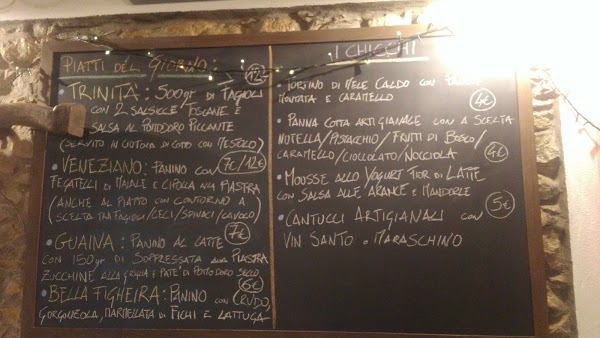 PIATTI DEL GIORNO:
12€
• TRINITÀ: 500gr DI FAGIOLI
CON 2 SALSICCE TOSCANE E
SALSA AL POMODORO PICCANTE
(SERVITO IN CIOTOLA DI COCCIO CON MESTOLO)
• VENEZIANO: PANINO CON 7€/12€
FEGATELLI DI MAIALE E CIPOLLA ALLA PIASTRA
(ANCHE AL PIATTO CON CONTORNO A
SCELTA TRA FAGIOLI/CECI/SPINACI/CAVOLO)
7€
• GUAINA: PANINO AL LATTE
CON 150gr DI SOPPRESSATA ALLA PIASTRA
ZUCCHINE ALLA GRIGLIA E PATE' DI POMODORO SECCO
6€
• BELLA FIGHEIRA: PANINO CON CRUDO,
GORGONZOLA, MARMELLATA DI FICHI E LATTUGA
I CHICCHI
• TORTINO DI MELE CALDO CON
MONTATA E CARAMELLO 4€
• PANNA COTTA ARTIGIANALE CON A SCELTA
NUTELLA/PISTACCHIO/FRUTTI DI BOSCO/
CARAMELLO/CIOCCOLATO/NOCCIOLA 4€
• MOUSSE ALLO YOGURT FIOR DI LATTE
CON SALSA ALLE ARANCE E MANDORLE
5€
• CANTUCCI ARTIGIANALI CON
VIN SANTO O MARASCHINO